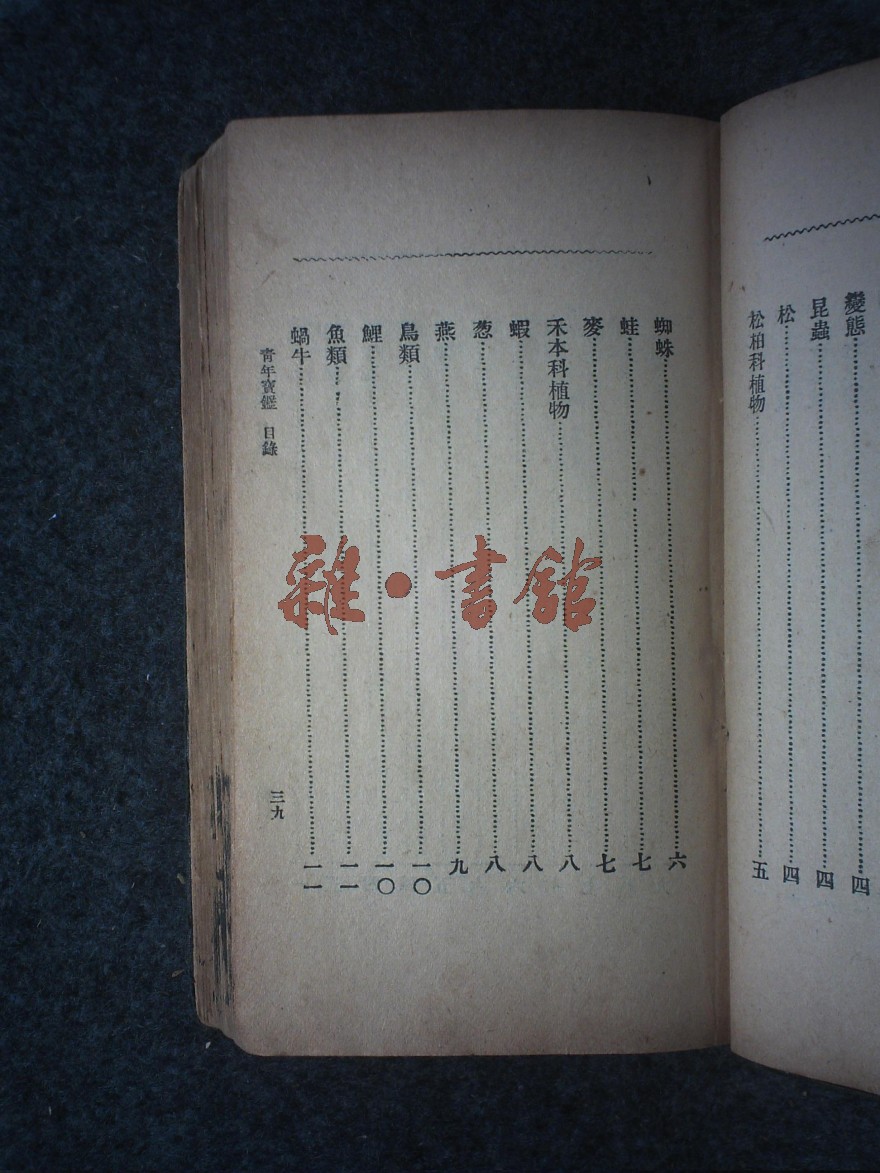 變態⋯⋯四
昆蟲⋯⋯四
松⋯⋯四
松柏科植物⋯⋯五
蜘蛛⋯⋯六
蛙⋯⋯七
麥⋯⋯七
禾本科植物⋯⋯八
蝦⋯⋯八
葱⋯⋯八
燕⋯⋯九
鳥類⋯⋯一〇
鯉⋯⋯一〇
魚類⋯⋯一一
蝸牛⋯⋯一一
青年寶鑑 目錄
三九
雜·書館